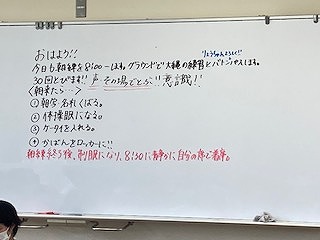 おはよう!!
りょうちゃんよろしく!!
今日も朝練を8:00〜します。グラウンドで大縄の練習とバトンパスします。
30回とびます!! 声・その場でとぶ!! 意識!!
<朝来たら…>
① 朝写・名札くばる。
② 体操服になる。
③ ケータイを入れる。
④ かばんをロッカーに!!
朝練終了後、制服になり、8:30に 自分の席で着席。